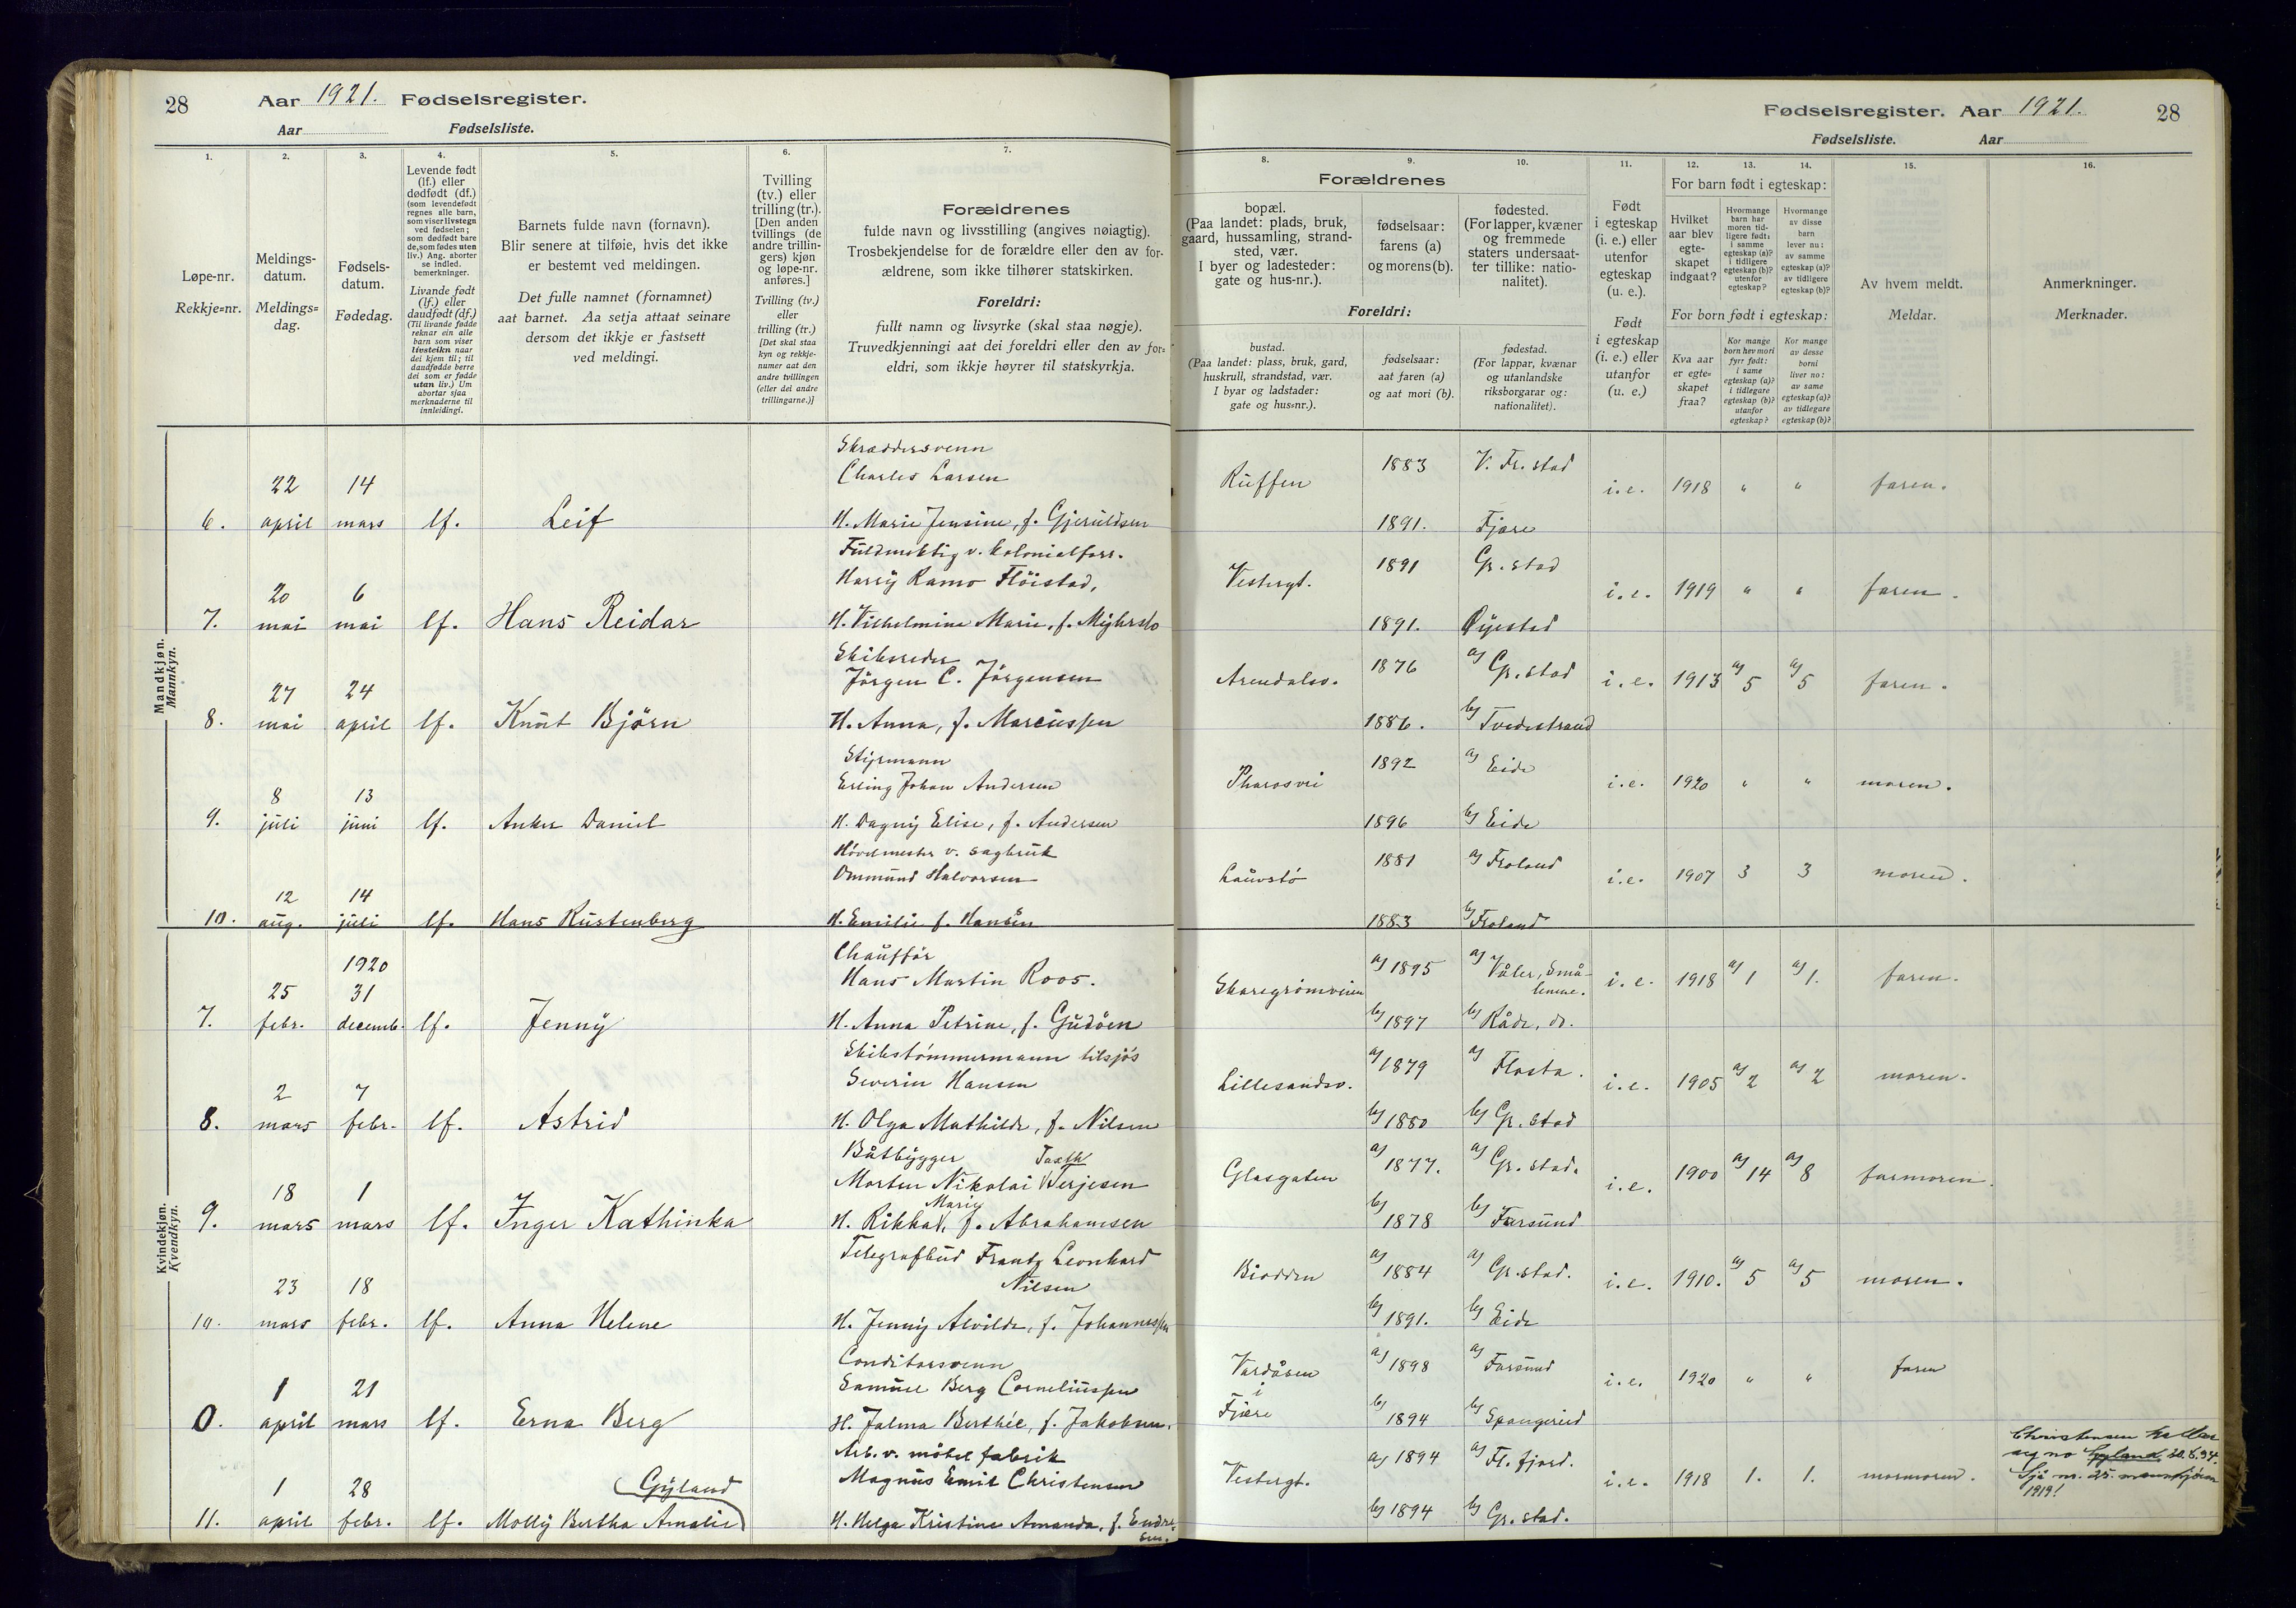 28 Aar 1921. Fødselsregister.
Aar Fødselsliste.
Fødselsregister. Aar 1921. 28
Fødselsliste. Aar
1. 2. 3. 4. 5. 6. 7.
Løpe-nr.
Rekkje=nr.
Meldings-
datum.
Meldings=
dag.
Fødsels-
datum.
Fødedag.
Levende født
(lf.) eller
dødfødt (df.)
(som levendefødt
regnes alle barn,
som viser livstegn
ved fødselen;
som dødfødt bare
de, som fødes uten
liv.) Ang. aborter
se indled.
bemerkninger.
Livande født
(lf.) eller
daudfødt (df.)
(Til livande fødde
reknar ein alle
barn som viser
livsteikn naar
dei kjem til; til
daudfødde berre
dei som er fødde
utan liv.) Um
abortar sjaa
merknaderne til
innleidingi.
Barnets fulde navn (fornavn).
Blir senere at tilføie, hvis det ikke
er bestemt ved meldingen.
Det fulle namnet (fornamnet)
aat barnet. Aa setja attaat seinare
dersom det ikkje er fastsett
ved meldingi.
Tvilling
(tv.) eller
trilling (tr.).
[Den anden
tvillings (de
andre trillin-
gers) kjøn
og løpe-nr.
anføres.]
Tvilling (tv.)
eller
trilling (tr.)
[Det skal staa
kyn og rekkje-
numer aat den
andre tvillingen
(eller dei andre
trillingarne.)]
Forældrenes
fulde navn og livsstilling (angives nøiagtig).
Trosbekjendelse for de forældre eller den av for-
ældrene, som ikke tilhører statskirken.
Foreldri:
fullt namn og livsyrke (skal staa nøgje).
Truvedkjenningi aat dei foreldri eller den av for=
eldri, som ikkje høyrer til statskyrkja.
8. 9. 10. 11. 12. 13. 14. 15. 16.
Forældrenes
bopæl.
(Paa landet: plads, bruk,
gaard, hussamling, strand-
sted, vær.
I byer og ladesteder:
gate og hus-nr.).
fødselsaar:
farens (a)
og morens (b).
fødested.
(For lapper, kvæner
og fremmede
staters undersaat-
ter tillike: natio-
nalitet).
Foreldri:
bustad.
(Paa landet: plass, bruk, gard,
huskrull, strandstad, vær.
I byar og ladstader:
gate og hus=nr.).
fødselsaar:
aat faren (a)
og aat mori (b).
fødestad.
(For lappar, kvænar
og utanlandske
riksborgarar og:
nationalitet).
Født
i egteskap
(i. e.) eller
utenfor
egteskap
(u. e.).
Født
i egteskap
(i. e.) eller
utanfor
(u. e.)
For barn født i egteskap:
Hvilket
aar blev
egte-
skapet
indgaat?
Hvormange
barn har
moren tid-
ligere født:
i samme
egteskap (a)?
i tidligere
egteskap (b)?
utenfor
egteskap?
Hvormange
av disse
barn
lever nu:
av samme
egteskap (a)?
av tidligere
egteskap (b)?
For born født i egteskap:
Kva aar
er egte=
skapet
fraa?
Kor mange
born hev mori
fyrr født:
i same
egteskap (a)?
i tidlegare
egteskap (b)?
utanfor
egteskap?
Kor mange
av desse
borni
liver no:
av same
egteskap (a)?
av tidlegare
egteskap (b)?
Av hvem meldt.
Meldar.
Anmerkninger.
Merknader.
Mandkjøn.
Mannkyn.
Skræddersvenn
Charles Larsen Ruffen 1883 V. Fr. stad
22 14 i.e. 1918 " " faren.
6. april mars lf. Leif H. Marie Jensine, f. Gjeruldsen 1891. Fjære
Fuldmektig v. kolonialforr.
Harry Ramo Fløistad, Vestergt. 1891 Gr. stad
20 6 i.e. 1919 " " faren.
7. mai mai lf. Hans Reidar H. Vilhelmine Marie, f. 1891. Øyestad
Skibsreder
Jørgen C. Jörgensen Arendalsv. 1876 a) Gr. stad
27 24 i.e. 1913 a) 5 a) 5 faren.
8. mai april lf. Knut Bjørn H. Anna, f. Marcussen 1886. b) Tvedestrand
Styrmann
Erling Johan Andersen Pharosvei 1892 a) Eide
8 13 i.e. 1920 " " moren.
9. juli juni lf. Anker Daniel H. Dagny Elise, f. Andersen 1896 b) Eide
Høvelmester v. sagbruk
Ommund Halvorsen Lauvstø 1881 a) Froland
12 14 i.e. 1907 3 3 moren.
10. aug. juli lf. Hans Rustenberg H. Emilie f. Hansen 1883 b) Froland
Kvindekjøn.
Kvendkyn.
Chauffør
1920 Hans Martin Roos. Skaregrømveien a) 1895 a) Våler, Små-
lenene.
25 31 i.e. 1918 a) 1 a) 1. faren.
7. febr. decemb. lf. Jenny H. Anna Petrine, f. Gudøen b) 1897 b) Råde, do.
Skibstømmermann tilsjøs
Severin Hansen Lillesandsv. a) 1879 a) Flosta.
2 7 i.e. 1905 a) 2 a) 2 moren.
8. mars febr. lf. Astrid H. Olga Mathilde, f. Nilsen b) 1880 b) Gr. stad
Båtbygger
Morten Nikolai Terjesen Glasgaten a) 1877. a) Gr. stad.
18 1 Marie i.e. 1900 a) 14 a) 8 farmoren.
9. mars mars lf. Inger Kathinka H. Rikka, f. Abrahamsen b) 1878 b) Farsund
Telegrafbud Frantz Leonhard
Nilsen Biodden a) 1884 a) Gr. stad.
23 18 i.e. 1910. a) 5 a) 5 moren.
10. mars febr. lf. Anna Helene H. Jenny Alvilde, f. Johannessen b) 1891. b) Eide
Conditorsvenn
Samuel Berg Corneliussen Vardåsen a) 1898 a) Farsund
i
Fjære
1 21 i.e. 1920 " " faren
0. april mars lf. Erna Berg H. Jalma Berthée, f. Jakobsen. b) 1894 b) Spangereid
Arb. v. møbel fabrik
Magnus Emil Christensen Vestergt. a) 1894 a) Fl. fjord.
Gyland
1 28 i.e. 1918 1. 1. mormoren.
11. april febr. lf. Molly Bertha Amalie H. Helga Kristine Amanda, f. Endre-
sen. b) 1894 b) Gr. stad.
Christensen kaller
seg no Gyland,
Sjå nr. 25. mannkjønn
1919!